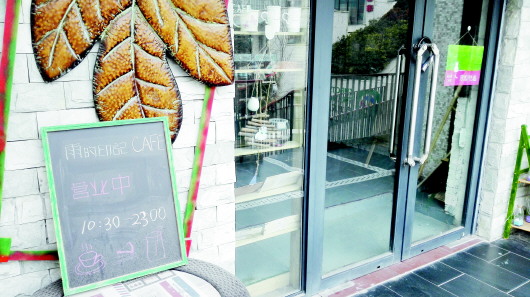 雨时日记 CAFE
营业中
10:30 2300